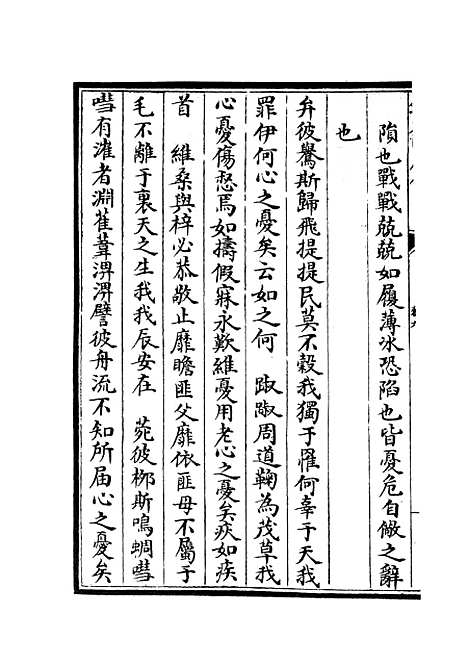 隕也戰戰兢兢如履薄冰恐陷也皆憂危自儆之辭
也
弁彼鸒斯歸飛提提民莫不穀我獨于罹何辜于天我
罪伊何心之憂矣云如之何　踧踧周道鞫為茂草我
心憂傷惄焉如擣假寐永歎維憂用老心之憂矣疢如疾
首　維桑與梓必恭敬止靡瞻匪父靡依匪母不屬于
毛不離于裏天之生我我辰安在　菀彼栁斯鳴蜩嘒
嘒有漼者淵萑葦淠淠譬彼舟流不知所届心之憂矣